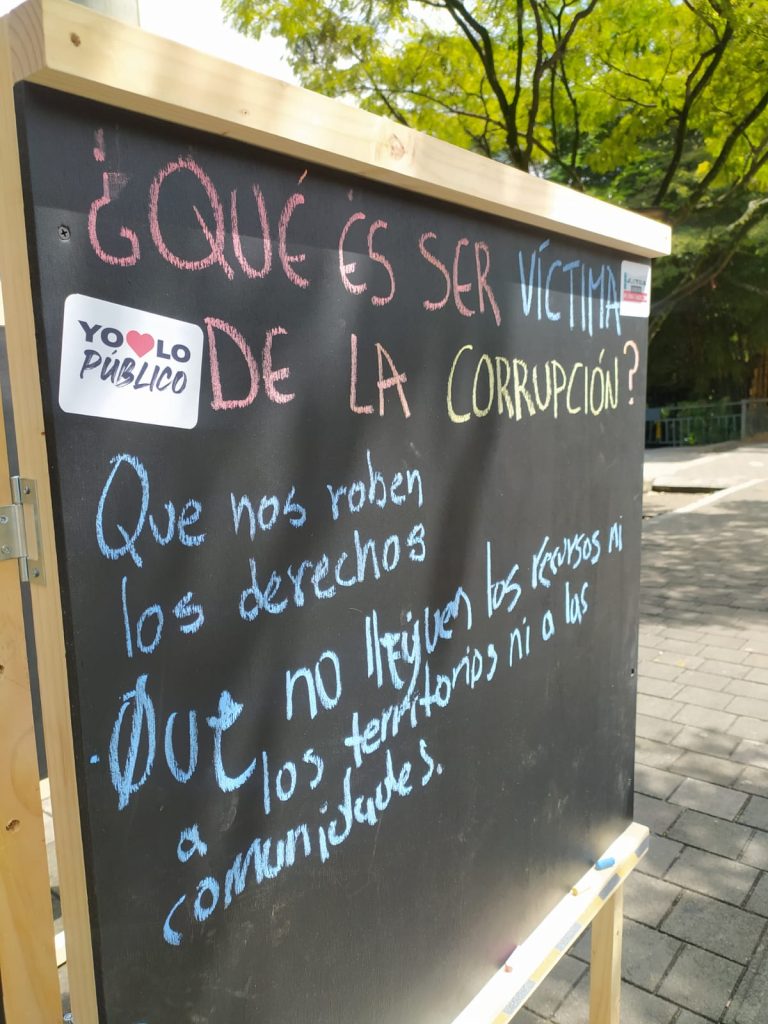 ¿QUÉ ES SER VÍCTIMA
DE LA CORRUPCIÓN?
YO LO
PÚBLICO
Que nos roben
los derechos
Que no lleguen los recursos ni
a los territorios ni a las
comunidades.